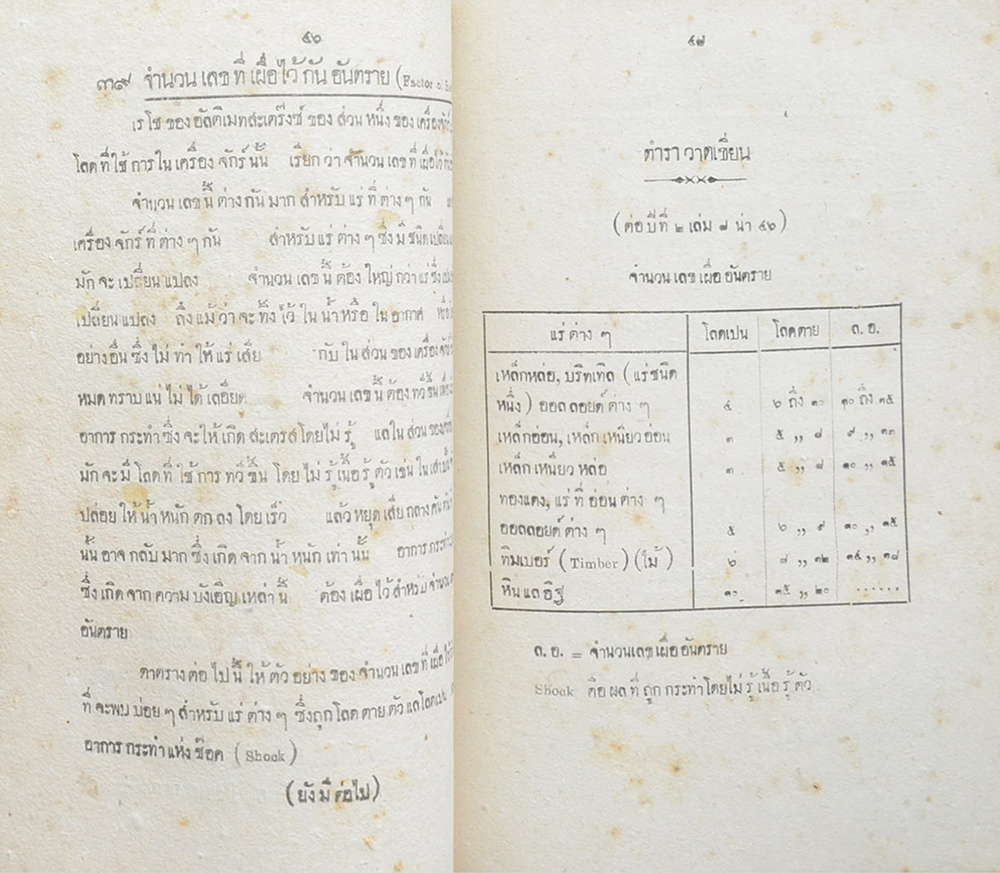 ๔๖
๓๙ จำนวน เลข ที่ เผื่อ ไว้ กัน อันตราย (Factor of
เร โช ของ อัลติเมทสะเตร๊งซ์ ของ ส่วน หนึ่ง ของ เครื่องจักร์
โลด ที่ ใช้ การ ใน เครื่อง จักร์ นั้น เรียก ว่า จำนวน เลข ที่ เผื่อ ไว้
จำนวน เลข นี้ ต่าง กัน มาก สำหรับ แร่ ที่ ต่าง ๆ กัน
เครื่อง จักร์ ที่ ต่าง ๆ กัน สำหรับ แร่ ต่าง ๆ ซึ่ง มี ชนิด
มัก จะ เปลี่ยน แปลง จำนวน เลข นี้ ต้อง ใหญ่ กว่า แร่ ซึ่ง
เปลี่ยน แปลง ถึง แม้ ว่า จะ ทิ้ง ไว้ ใน น้ำ หรือ ใน อากาศ
อย่าง อื่น ซึ่ง ไม่ ทำ ให้ แร่ เสีย กับ ใน ส่วน ของ เครื่อง
หมด ทราบ แน่ ไม่ ได้ เลอียด จำนวน เลข นี้ ต้อง ทวี ขึ้น
อาการ กระทำ ซึ่ง จะ ให้ เกิด สะเตรส โดย ไม่ รู้ แล ใน ส่วน ของ
มัก จะ มี โลด ที่ ใช้ การ ทวี ขึ้น โดย ไม่ รู้ เนื้อ รู้ ตัว เช่น ใน
ปล่อย ให้ น้ำ หนัก ตก ลง โดย เร็ว แล้ว หยุด เสีย กลาง คัน
นั้น อาจ กลับ มาก ซึ่ง เกิด จาก น้ำ หนัก เท่า นั้น อาการ
ซึ่ง เกิด จาก ความ บังเอิญ เหล่า นี้ ต้อง เผื่อ ไว้ สำหรับ จำนวน
อันตราย
ตาตราง ต่อ ไป นี้ ให้ ตัว อย่าง ของ จำนวน เลข ที่ เผื่อ
ที่ จะ พบ บ่อย ๆ สำหรับ แร่ ต่าง ๆ ซึ่ง ถูก โลด ตาย ตัว แล
อาการ กระทำ แห่ง ช๊อค (Shock)
(ยัง มี ต่อ ไป)
๔๗
ตำรา วาดเขียน
(ต่อ ปี ที่ ๒ เล่ม ๗ น่า ๔๖)
จำนวน เลข เผื่อ อันตราย
แร่ ต่าง ๆ โลดเปน โลดตาย ล. อ.
เหล็กหล่อ, บริทเทิล (แร่ชนิด
หนึ่ง) ออล ลอยด์ ต่าง ๆ ๔ ๖ ถึง ๑๐ ๑๐ ถึง ๑๕
เหล็กอ่อน, เหล็ก เหนียว อ่อน ๓ ๕ ,, ๘ ๙ ,, ๑๓
เหล็ก เหนียว หล่อ ๓ ๕ ,, ๘ ๑๐ ,, ๑๕
ทองแดง, แร่ ที่ อ่อน ต่าง ๆ
ออลลอยด์ ต่าง ๆ ๕ ๖ ,, ๙ ๑๐ ,, ๑๕
ทิมเบอร์ (Timber) (ไม้) ๖ ๘ ,, ๑๒ ๑๔ ,, ๑๘
หิน แล อิฐ ๑๐ ๑๕ ,, ๒๐ ......
ล. อ. = จำนวนเลข เผื่อ อันตราย
Shock คือ ผล ที่ ถูก กระทำ โดย ไม่ รู้ เนื้อ รู้ ตัว